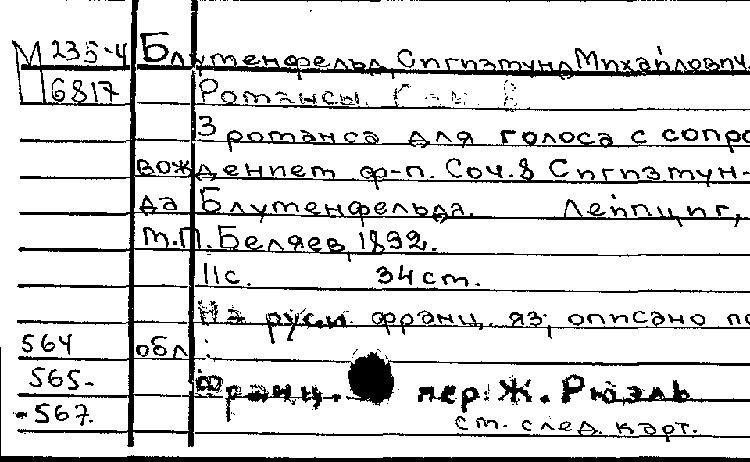 М 235-4 Блуменфельд, Сигизмунд Михайлович.
6817 Романсы.
3 романса для голоса с сопро
вождением ф-п. Соч. 8 Сигизмун-
да Блуменфельда. Лейпциг,
М.П. Беляев, 1892.
11с. 34 см.
На рус. и франц. яз, описано по
564 обл.
565- Франц. пер. Ж. Рюэль
-567. см. след. карт.